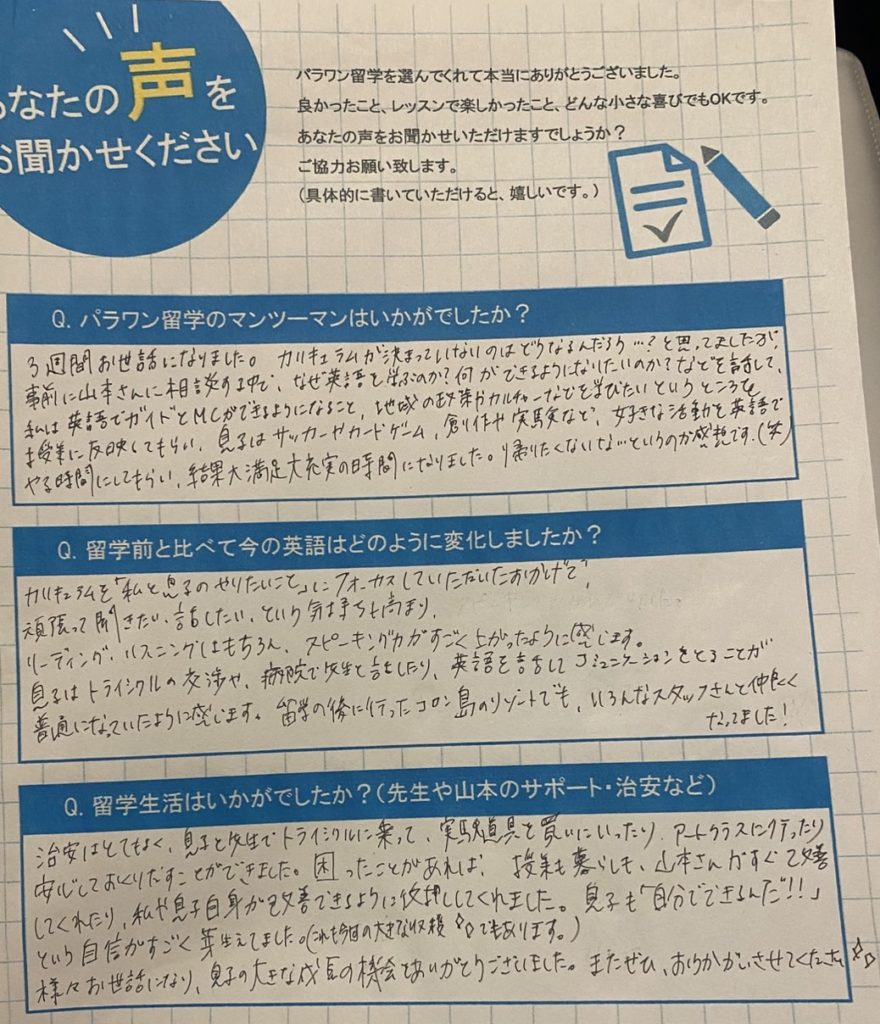 あなたの声を
お聞かせください
パラワン留学を選んでくれて本当にありがとうございました。
良かったこと、レッスンで楽しかったこと、どんな小さな喜びでもOKです。
あなたの声をお聞かせいただけますでしょうか？
ご協力お願い致します。
（具体的に書いていただけると、嬉しいです。）
Q. パラワン留学のマンツーマンはいかがでしたか？
3週間お世話になりました。カリキュラムが決まっていないのはどうなるんだろう…？と思ってましたが、
事前に山本さんに相談する中で、なぜ英語を学ぶのか？何ができるようになりたいのか？などを話して、
私は英語でガイドとMCができるようになること、地域の政策やカルチャーなどを学びたいというところを
授業に反映してもらい、息子はサッカーやカードゲーム、創作や実験など、好きな活動を英語で
やる時間にしてもらい、結果大満足大充実の時間になりました。帰りたくないな…というのが感想です。(笑)
Q. 留学前と比べて今の英語はどのように変化しましたか？
カリキュラムを「私と息子のやりたいこと」にフォーカスしていただいたおかげで、
頑張って聞きたい・話したい、という気持ちも高まり、
リーディング・リスニングはもちろん、スピーキング力がすごく上がったように感じます。
息子はトライシクルの交渉や、病院で先生と話をしたり、英語を話してコミュニケーションをとることが
普通になっていたように感じます。留学の後に行ったコロン島のリゾートでも、いろんなスタッフさんと仲良く
なってました！
Q. 留学生活はいかがでしたか？（先生や山本のサポート・治安など）
治安はとてもよく、息子と先生でトライシクルに乗って、実験道具を買いにいったり、アートクラスに行ったり
安心しておくりだすことができました。困ったことがあれば、授業も暮らしも、山本さんがすぐ改善
してくれたり、私や息子自身が改善できるように後押ししてくれました。息子も「自分でできるんだ!!」
という自信がすごく芽生えてました。(これも今回の大きな収穫でもあります。)
様々お世話になり、息子の大きな成長の機会をありがとうございました。またぜひ、おうかがいさせてください